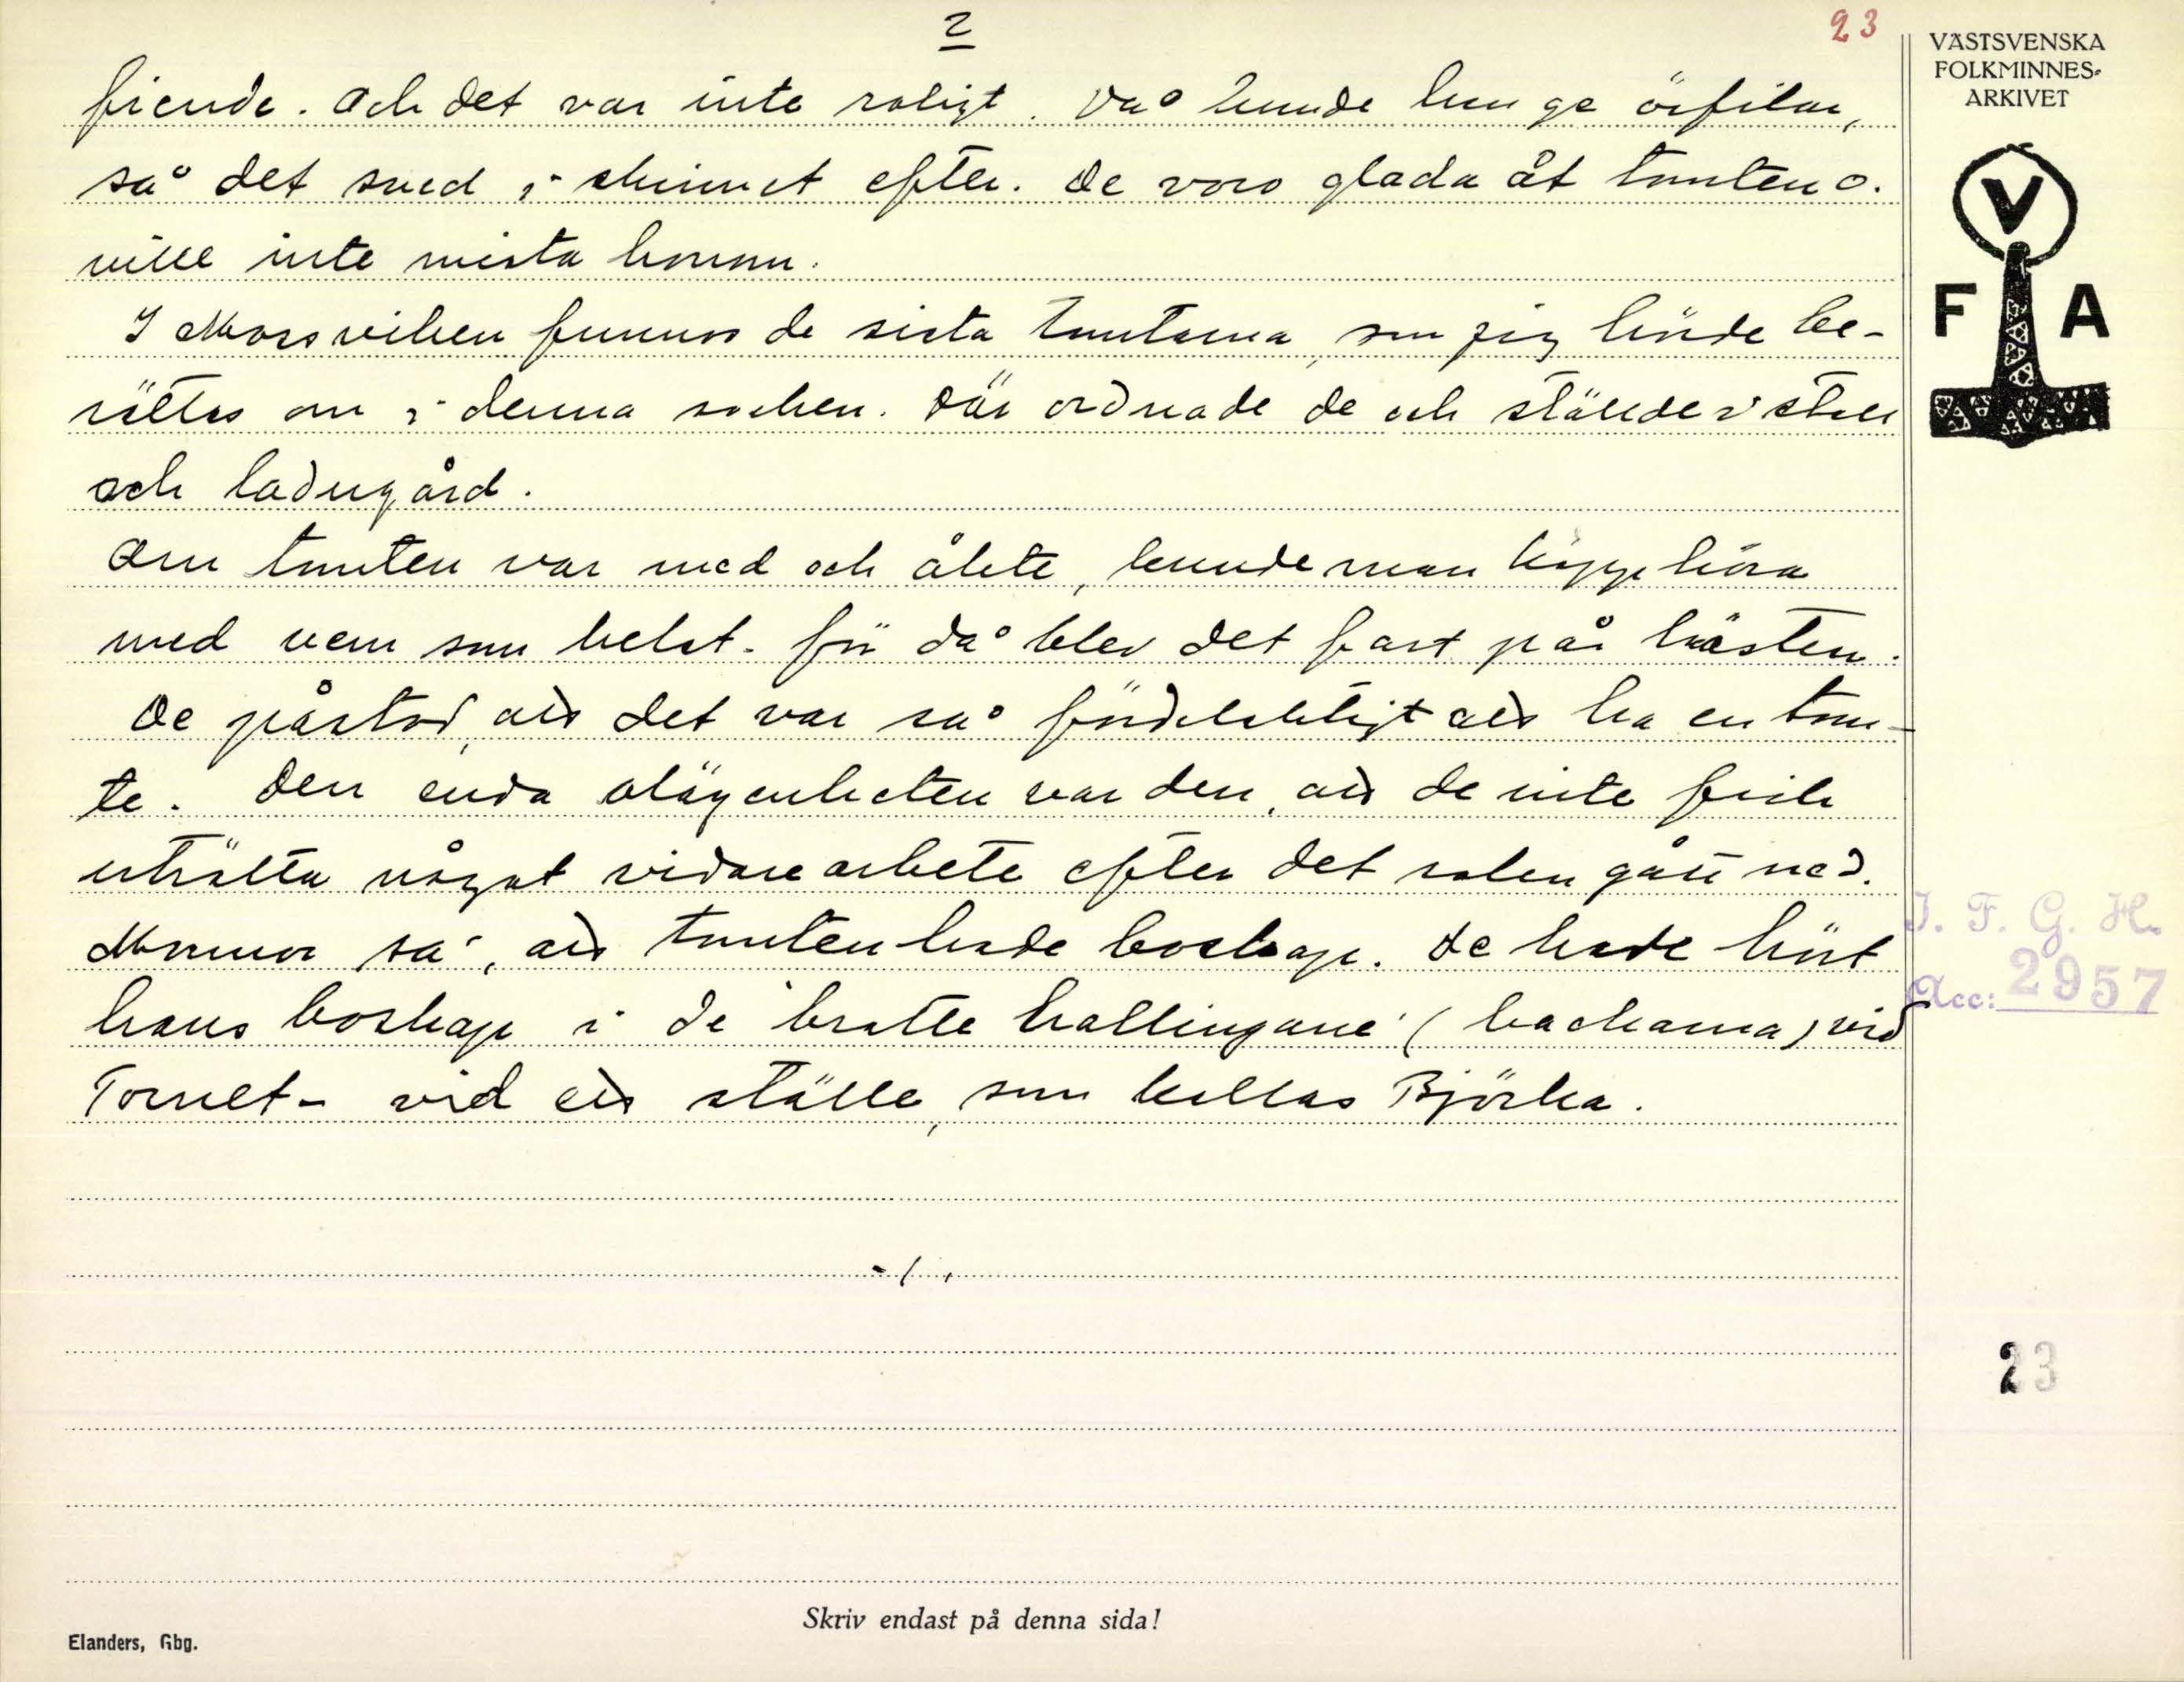 2
23
VÄSTSVENSKA
FOLKMINNES-
ARKIVET
fiende. Och det var inte roligt. Då kunde han ge örfilar,
så det sved i skinnet efter. De voro glada åt tomten o.
ville inte mista honom.
V
F A
I Morsviken funnos de sista tomtarna, som jag hörde be-
rättas om i denna socken. Där ordnade de och ställde i stall
och ladugård.
Om tomten var med och åkte, kunde man köra
med vem som helst. för då blev det fart på hästen.
De påstod, att det var så fördelaktigt att ha en tom-
te. Den enda olägenheten var den, att de inte fick
uträtta något vidare arbete efter det solen gått ned.
Mormor sa', att tomten hade boskap. De hade hört
hans boskap i 'de bratte hallingane' (backarna) vid
Tornet - vid ett ställe, som kallas Björka.
I. F. G. H.
Acc: 2957
- / -
23
Skriv endast på denna sida!
Elanders, Gbg.